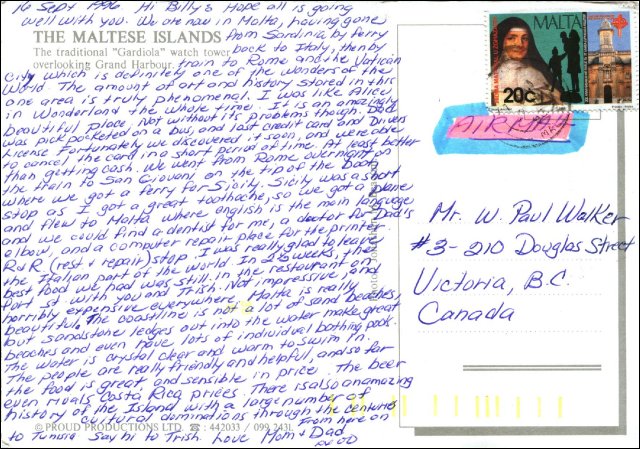 16 Sept 1996 Hi Billy's Hope all is going
well with you. We are now in Malta, having gone
THE MALTESE ISLANDS from Sardinia by Ferry
The traditional "Gardiola" watch tower back to Italy, then by
overlooking Grand Harbour. train to Rome and the Vatican
City which is definitely one of the wonders of the
World. The amount of art and history stored in this
one area is truly phenomenal. I was like Alice
in Wonderland the whole time. It is an amazingly
beautiful place. Not without its problems though. Dad
was pick pocketed on a bus, and lost credit card and Drivers
License Fortunately we discovered it soon, and were able
to cancel the card in a short period of time. At least better
than getting cash. We went from Rome overnight on
the train to San Giovani on the tip of the boot,
where we got a ferry for Sicily. Sicily was a short
stop as I got a great toothache, so we got a plane
and flew to Malta where english is the main language
and we could find a dentist for me, a doctor for Dad's
elbow, and a computer repair place for the printer.
R & R (rest & repair) stop. I was really glad to leave
the Italian part of the world. In 2½ weeks, the
best food we had was still in the restaurant on
Fort St with you and Trish. Not impressive, and
horribly expensive everywhere. Malta is really
beautiful. The coastline is not a lot of sand beaches,
but sandstone ledges out into the water make great
beaches and even have lots of individual bathing pools.
The water is crystal clear and warm to swim in.
The people are really friendly and helpful, and so far
the food is great and sensible in price. The beer
even rivals Costa Rica prices. There is also an amazing
history of the Island with a large number of
cultural dominations through the centuries
© PROUD PRODUCTIONS LTD. ☎: 442033 / 099 243L From here on
to Tunisia Say hi to Trish. Love Mom & Dad
MALTA
20c
AIR MAIL
Mr. W. Paul Walker
#3-210 Douglas Street
Victoria, B.C.
Canada